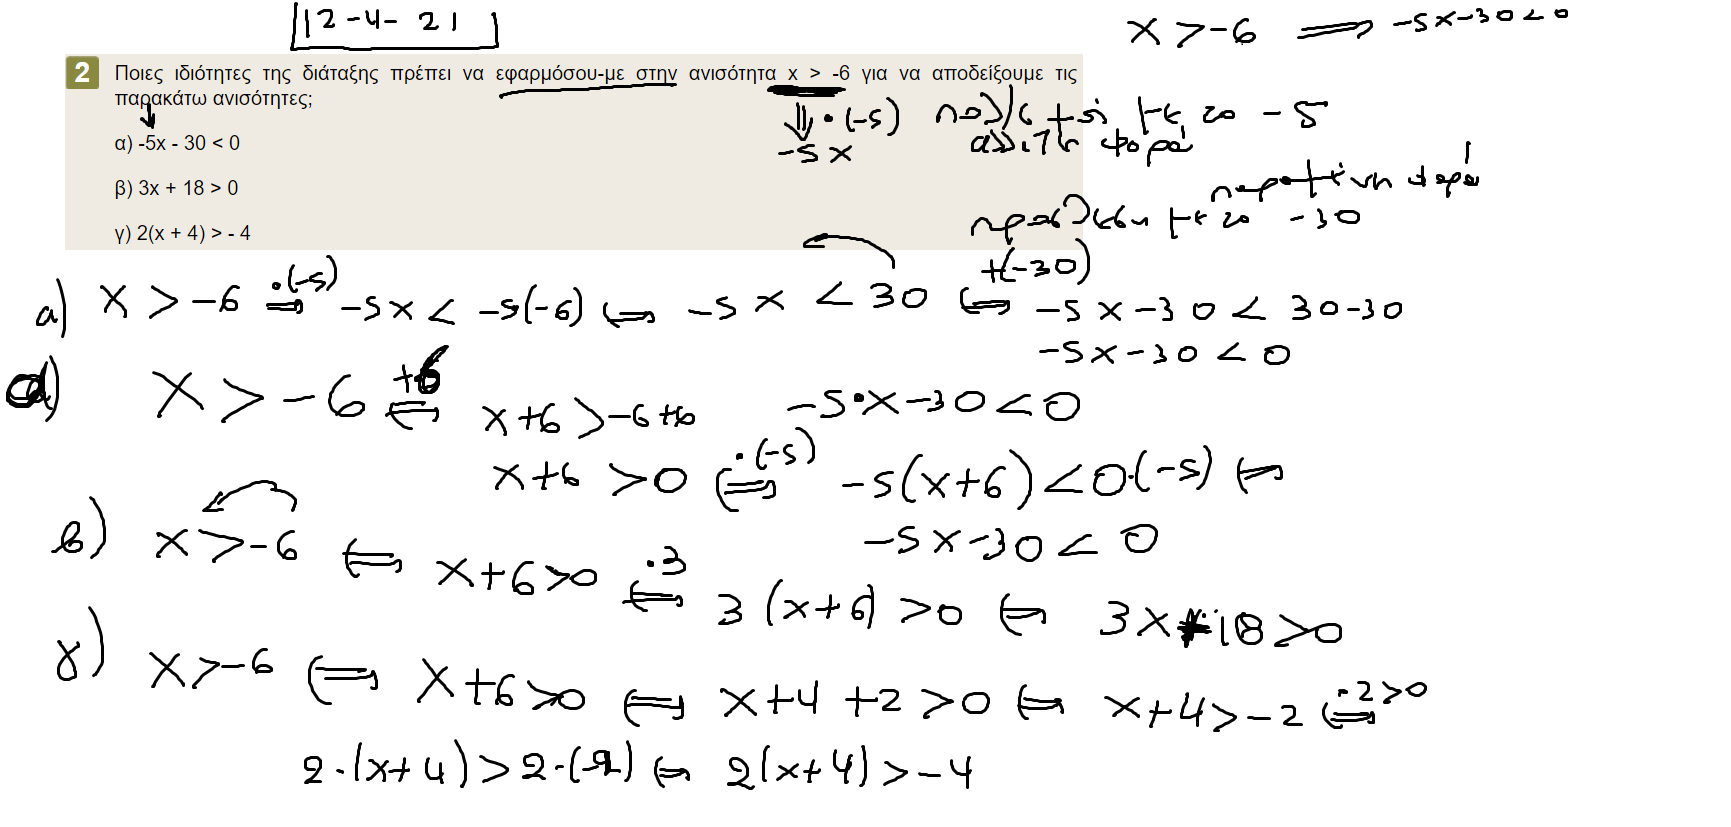 |2-4-21
x > -6 ⟹ -5x-30<0
2 Ποιες ιδιότητες της διάταξης πρέπει να εφαρμόσου-με στην ανισότητα x > -6 για να αποδείξουμε τις
παρακάτω ανισότητες;
·(-5) πολ/σ με το -5
α) -5x - 30 < 0
-5x αλλ φορά
β) 3x + 18 > 0
φορά
με το -30
γ) 2(x + 4) > - 4
+(-30)
α) x > -6 ⟹ ·(-5) -5x < -5(-6) ⟺ -5x < 30 ⟺ -5x-30 < 30-30
-5x-30 < 0
α) x > -6 ⟺ +6 x+6 > -6+6 -5·x-30<0
x+6 > 0 ⟺ ·(-5) -5(x+6)<0·(-5) ⟺
-5x-30< 0
β) x>-6 ⟺ x+6>0 ⟺ ·3 3(x+6)>0 ⟺ 3x+18>0
γ) x>-6 ⟺ x+6>0 ⟺ x+4+2>0 ⟺ x+4>-2 ⟺ ·2>0
2·(x+4)>2·(-2) ⟺ 2(x+4)>-4